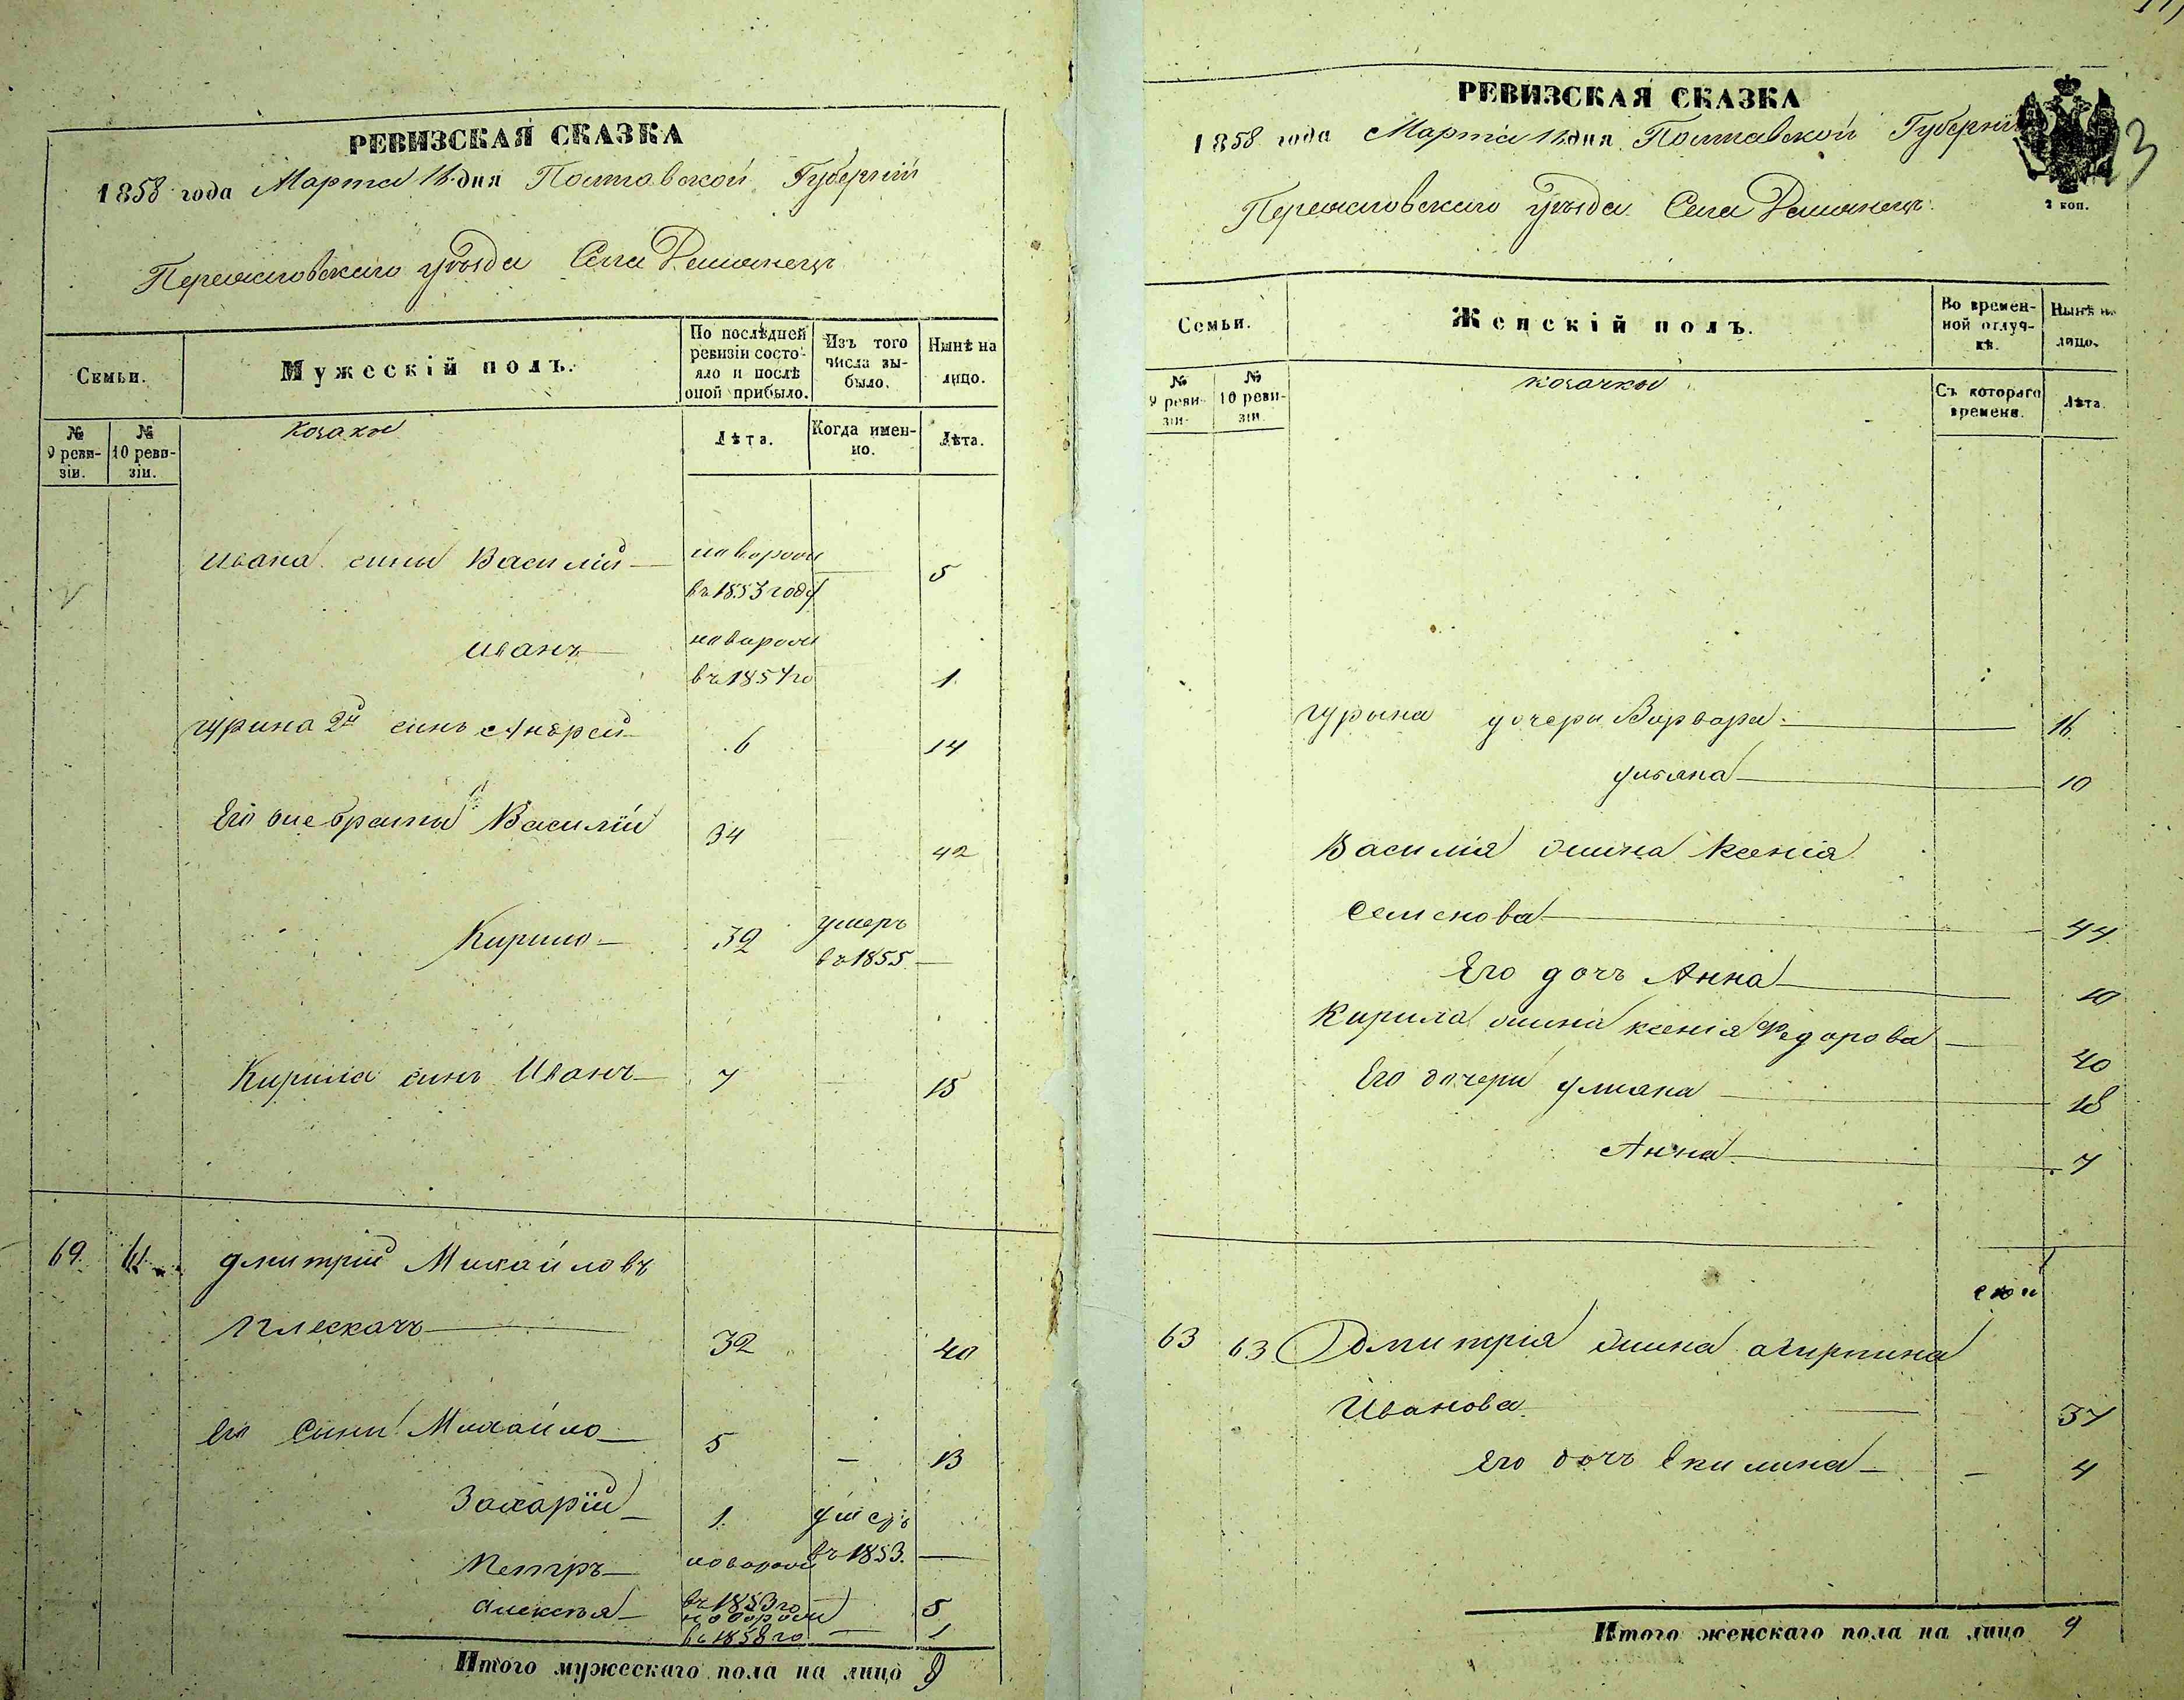 РЕВИЗСКАЯ СКАЗКА
1858 года Марта дня Полтавской Губернии
Переяславскаго уѣзда Села
Семьи.
Мужескій полъ.
По послѣдней ревизіи состояло и послѣ оной прибыло.
Изъ того числа выбыло.
Нынѣ на лицо.
№ 9 ревизіи.
№ 10 ревизіи.
козаки
Лѣта.
Когда именно.
Лѣта.
Ивана сины Василій 5
въ 1853 году
Иванъ
въ 1857 го 1
гурина 2й синъ Андрей 6 14
Его Василій 34 42
Кирило 32 умеръ
въ 1855
Кирила синъ Иванъ 7 15
69. Дмитрій Михайловъ
Плескачъ 32 40
Его Сини Михайло 5 13
Захарій 1 умеръ
въ 1853.
Петръ
въ 1853 го 5
Алексѣя 1
въ 1858 го
Итого мужескаго пола на лицо 9
РЕВИЗСКАЯ СКАЗКА
1858 года Марта дня Полтавской Губерніи
Переяславскаго уѣзда Села
2 коп.
3
Семьи.
Женскій полъ.
Во временной отлучкѣ.
Нынѣ на лицо.
№ 9 ревизіи.
№ 10 ревизіи.
козачки
Съ котораго времени.
Лѣта.
гурына дочери Варвара 16
ульяна 10
Василія Ксенія
Семенова 44
Его дочь Анна 10
Кирила ксенія Федорова 40
Его дочери улиана 18
Анна 7
63 63 Домитрія
Иванова 37
Его дочь 4
Итого женскаго пола на лицо 9